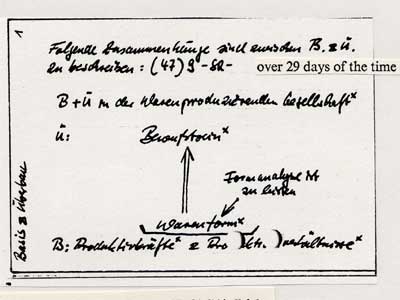 1
Folgende Zusammenhänge sind zwischen B. u. Ü.
zu beschreiben: (47) 9 -SR-
over 29 days of the time
B + Ü in der Warenproduzierenden Gesellschaft x
Ü: Bewußtsein x
Formanalyse ist
zu leisten
Warenform x
B: Produktivkräfte x Pro verhältnisse x
Basis Überbau